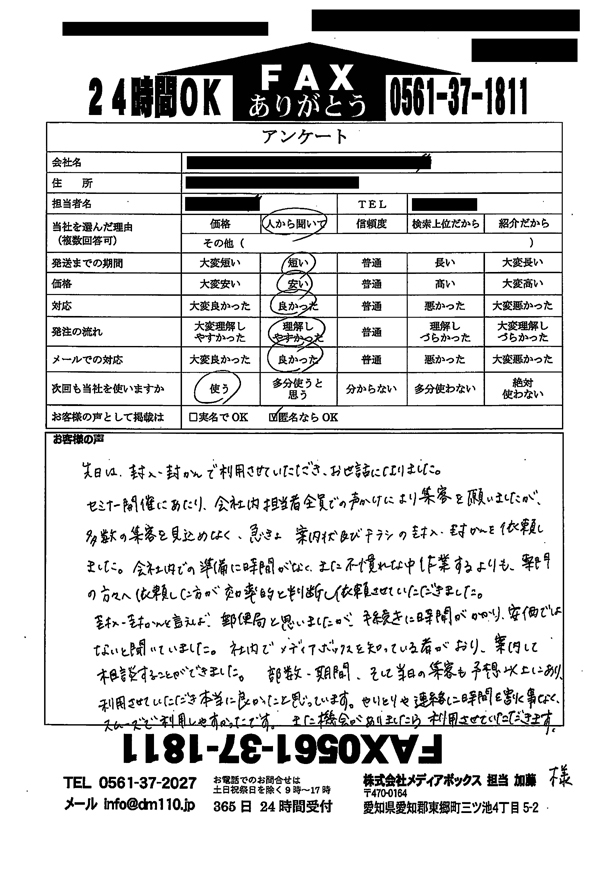 24時間OK
FAX
ありがとう
0561-37-1811
アンケート
会社名
住 所
担当者名 TEL
当社を選んだ理由
(複数回答可)
価格 人から聞いて 信頼度 検索上位だから 紹介だから
その他 ( )
発送までの期間 大変短い 短い 普通 長い 大変長い
価格 大変安い 安い 普通 高い 大変高い
対応 大変良かった 良かった 普通 悪かった 大変悪かった
発注の流れ 大変理解しやすかった 理解しやすかった 普通 理解しづらかった 大変理解しづらかった
メールでの対応 大変良かった 良かった 普通 悪かった 大変悪かった
次回も当社を使いますか 使う 多分使うと思う 分からない 多分使わない 絶対使わない
お客様の声として掲載は □実名でOK ☑匿名ならOK
お客様の声
先日は、封入・封かんで利用させていただき、お世話になりました。
セミナー開催にあたり、会社内担当者全員での声かけにより集客を願いましたが、
多数の集客を見込めなく、急きょ 案内状及びチラシの封入・封かんを依頼し
ました。会社内での準備に時間がなく、また不慣れな中作業するよりも、専門
の方々へ依頼した方が効率的と判断し依頼させていただきました。
封入・封かんと言えば、郵便局と思いましたが、手続きに時間がかかり、安価では
ないと聞いていました。社内でメディアボックスを知っている者がおり、案内して
相談することができました。 部数・期間、そして当日の集客も予想以上にあり、
利用させていただき本当に良かったと思っています。やりとりや連絡に時間を割く事なく、
スムーズで利用しやすかったです。また機会がありましたら利用させていただきます。
FAX0561-37-1811
TEL 0561-37-2027
メール info@dm110.jp
お電話でのお問合せは
土日祝祭日を除く9時～17時
365日 24時間受付
株式会社メディアボックス 担当 加藤 様
〒470-0164
愛知県愛知郡東郷町三ツ池4丁目5-2